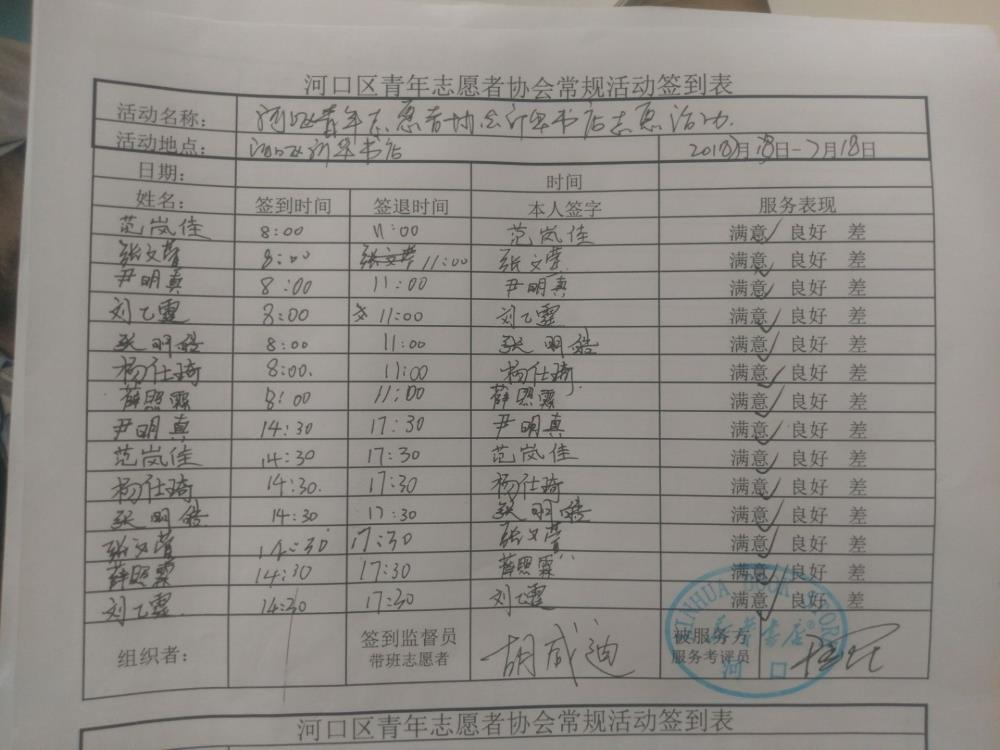 河口区青年志愿者协会常规活动签到表
活动名称： 河口区青年志愿者协会新华书店志愿活动.
活动地点： 河口区新华书店 2018 月18日-7月18日
日期： 时间
姓名： 签到时间 签退时间 本人签字 服务表现
范岚佳 8:00 11:00 范岚佳 满意✓ 良好 差
张文萱 8:00 11:00 张文萱 满意✓ 良好 差
尹明真 8:00 11:00 尹明真 满意✓ 良好 差
刘乙霆 8:00 11:00 刘乙霆 满意✓ 良好 差
张明皓 8:00 11:00 张明皓 满意✓ 良好 差
杨仕琦 8:00. 11:00 杨仕琦 满意✓ 良好 差
薛照霖 8:00 11:00 薛照霖 满意✓ 良好 差
尹明真 14:30 17:30 尹明真 满意✓ 良好 差
范岚佳 14:30 17:30 范岚佳 满意✓ 良好 差
杨仕琦 14:30. 17:30 杨仕琦 满意✓ 良好 差
张明皓 14:30 17:30 张明皓 满意✓ 良好 差
张文萱 14:30 17:30 张文萱 满意✓ 良好 差
薛照霖 14:30 17:30 薛照霖 满意✓ 良好 差
刘乙霆 14:30 17:30 刘乙霆 满意✓ 良好 差
组织者： 签到监督员 带班志愿者 胡成迪 被服务方 服务考评员
XINHUA BOOK STORE
新华书店®
河口
河口区青年志愿者协会常规活动签到表